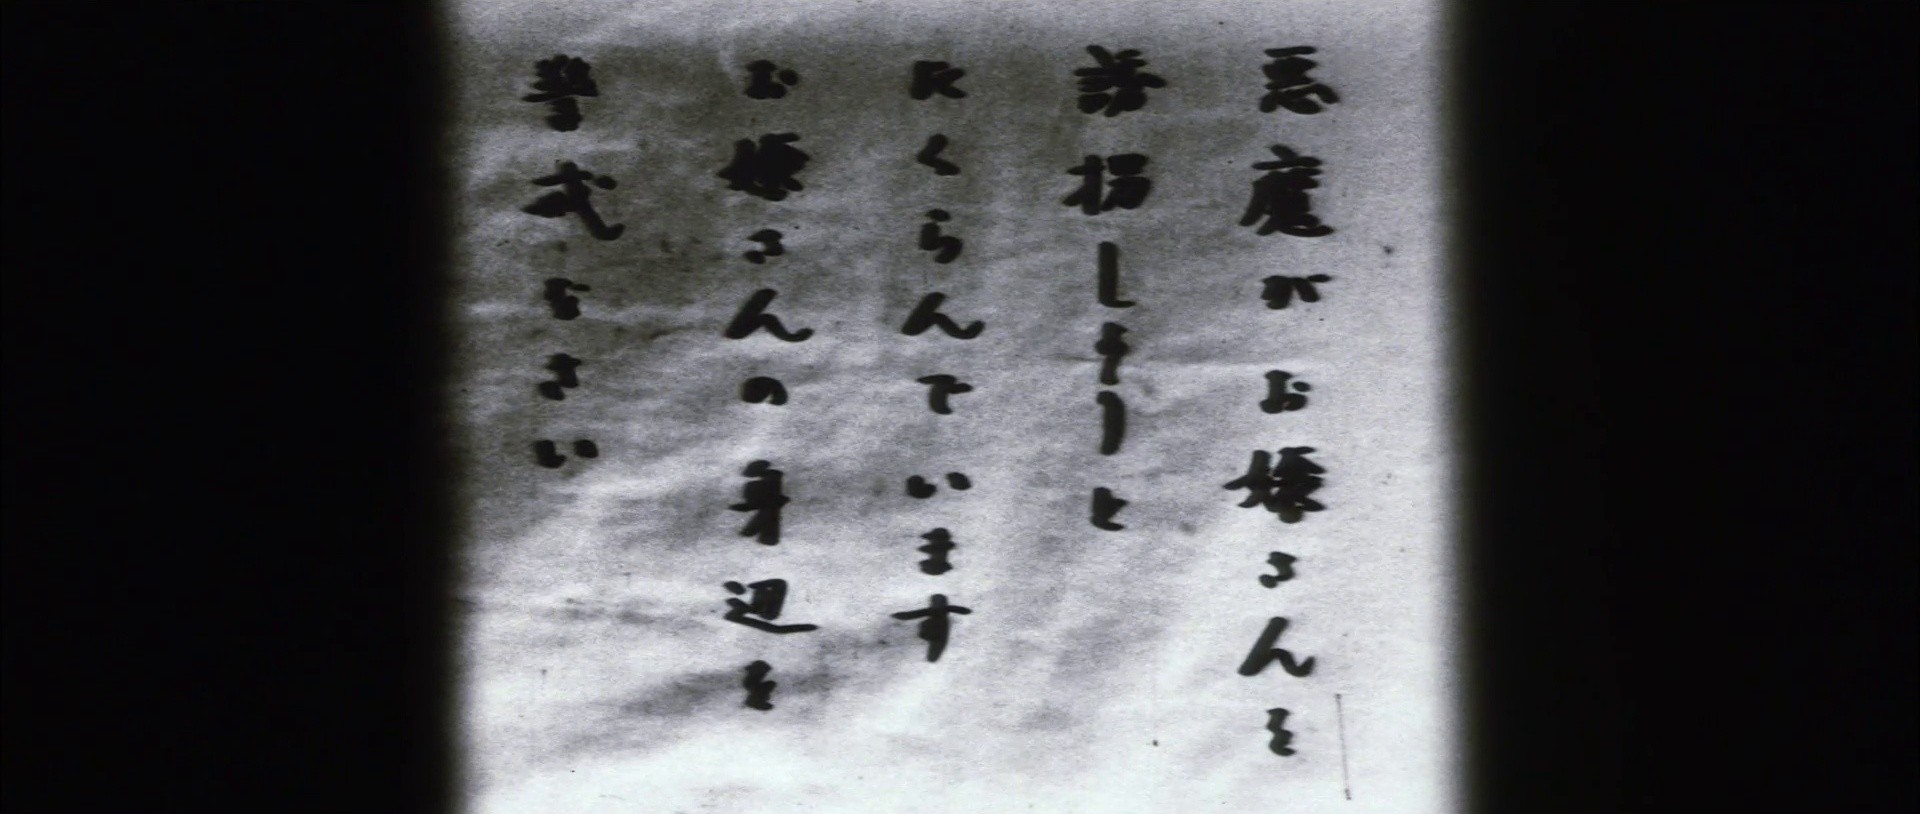 悪魔がお嬢さんを
誘拐しようと
たくらんでいます
お嬢さんの身辺を
警戒なさい